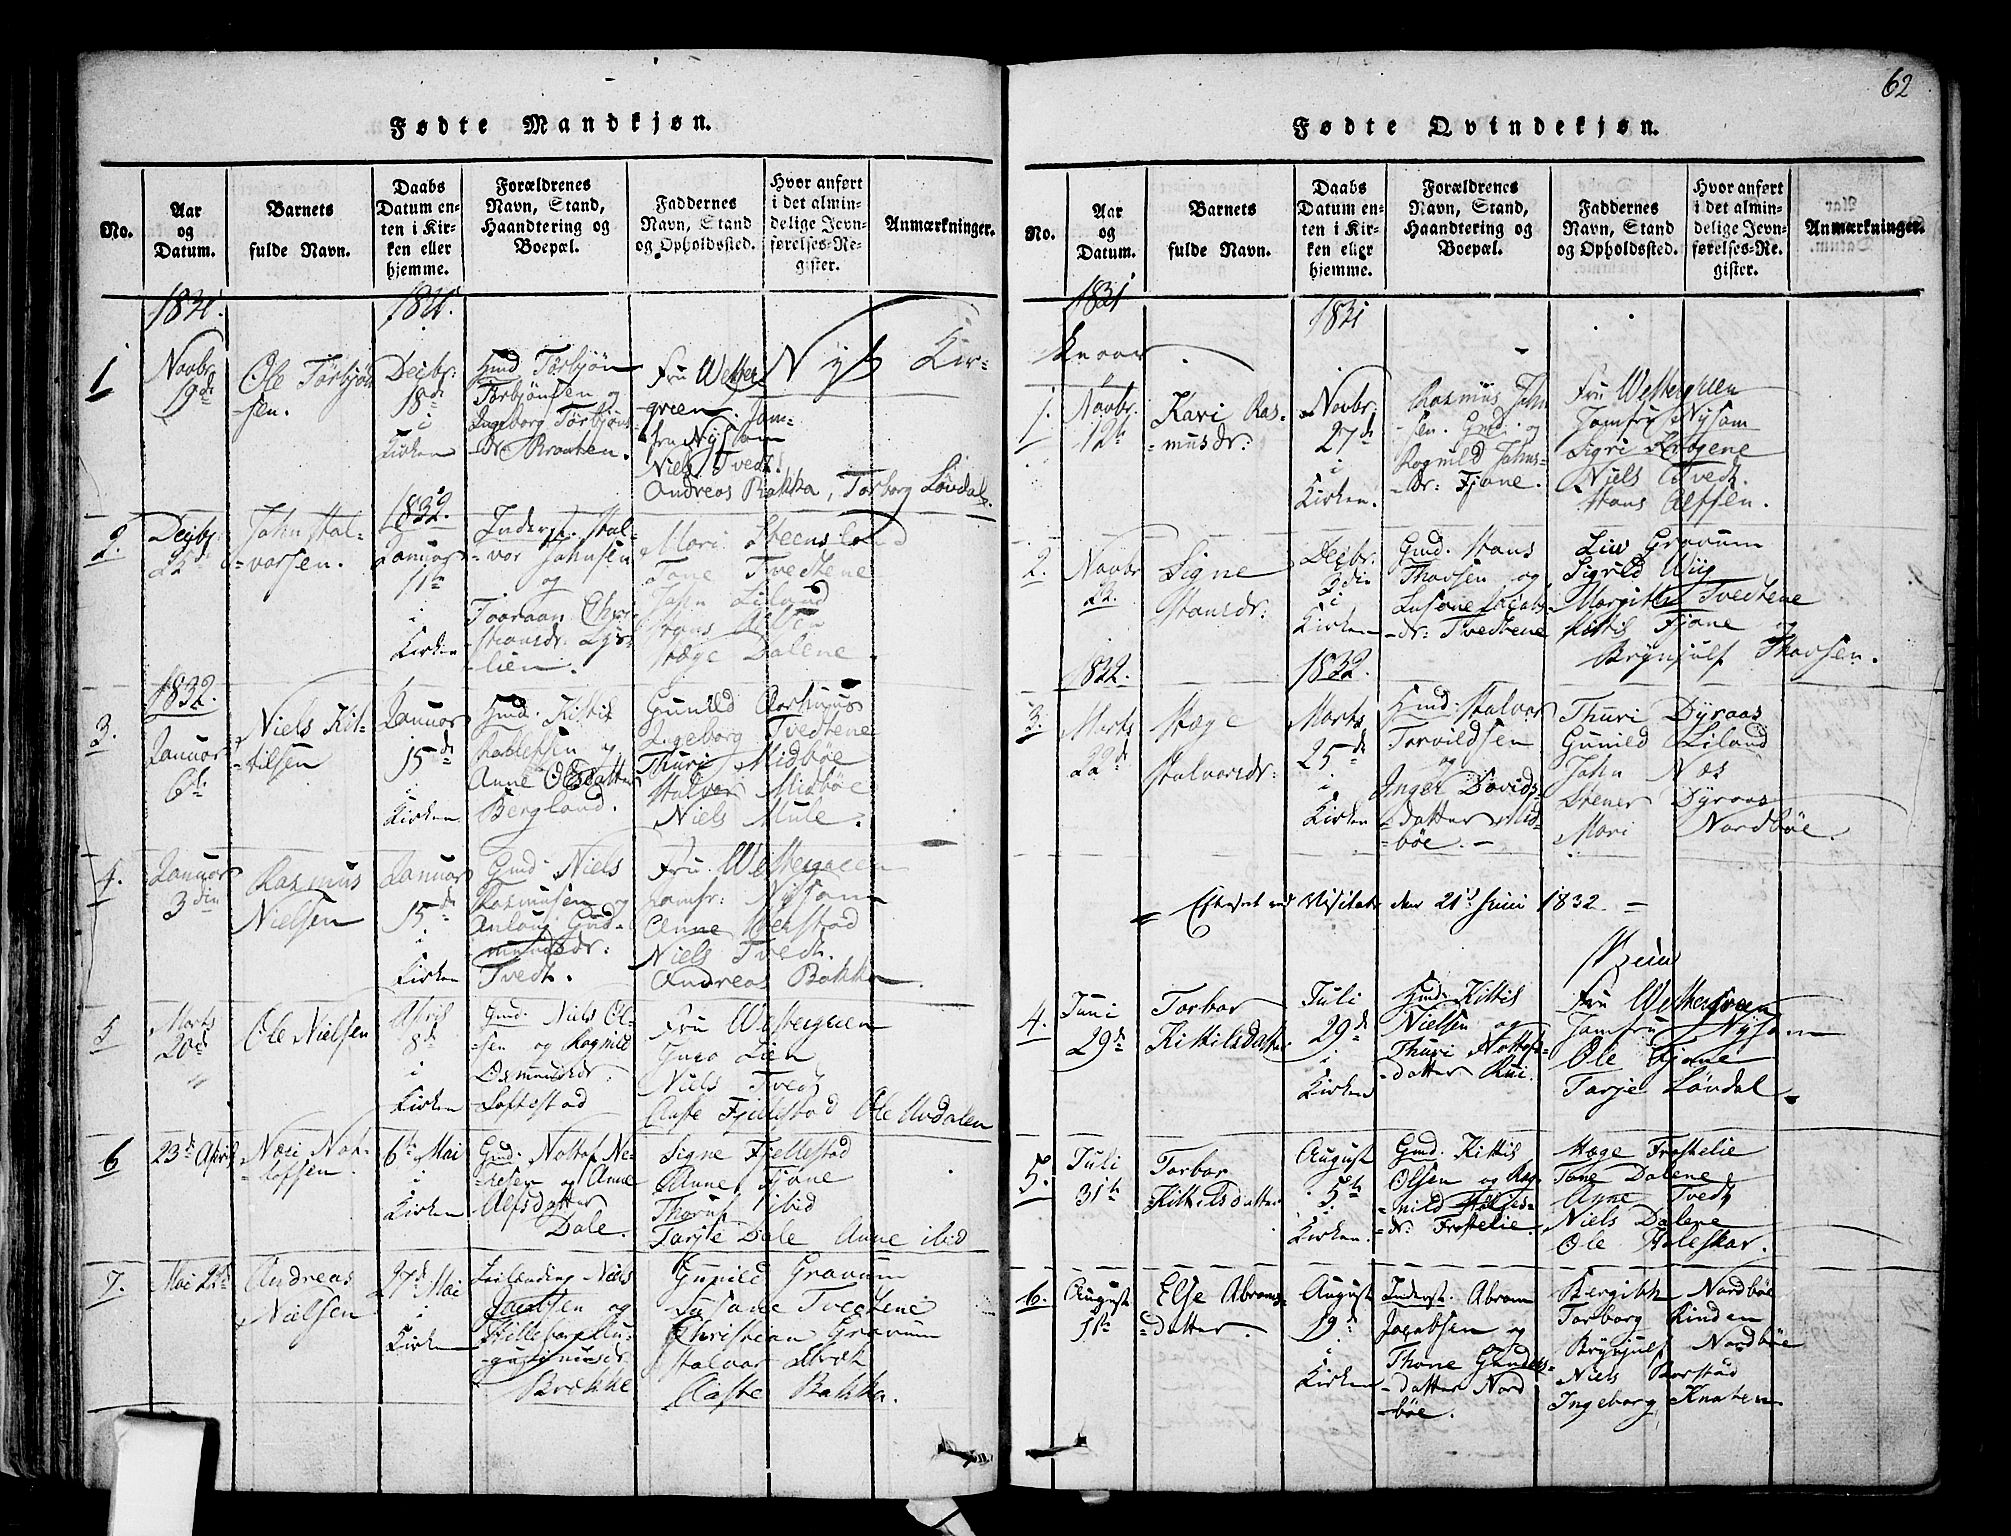 62
Fødte Mandkjøn.
No.
Aar
og
Datum.
Barnets
fulde Navn.
Daabs
Datum en-
ten i Kir-
ken eller
hjemme.
Forældrenes
Navn, Stand,
Haandtering og
Boepæl.
Faddernes
Navn, Stand
og Opholdssted.
Hvor anført
i det almin-
delige Jevn-
førelses-Re-
gister.
Anmærkninger.
1831.
1831.
1
Novbr.
19de
Ole Torbjøn
-sen.
Decbr.
18de
i
Kirken
Gmd Torbjøn
Torbjønsen og
Ingeborg Torbjøns
dr. Braaten.
Fru Wester
green. Jom-
fru Nysom
Niels Tvedt.
Andreas Bakka, Torborg Løvdal.
Nyt Kir-
2.
Decbr.
25de
John Hal-
-vorsen.
1832.
Januar
1ste
i
Kirken
Inderst. Hal-
-vor Johnsen
og
Taaraan Chri
-stiansdr.
lien.
Mari Steensland
Tone Tvedtene
John Liland
Hans
Hæge Dalene.
1832.
3.
Januar
6de
Niels Kit-
-tilsen
Januar
15de
i
Kirken
Gmd. Kittil
og
Anne Olsdatter
Bergland.
Gunild Aarhuus
Ingeborg Tvedtene
Thuri Midbøe
Halvor Midbøe
Niels Mule.
4.
Januar
3die
Rasmus
Nielsen
Januar
15de
i
Kirken
Gmd. Niels
Rasmusen og
Gud-
-mundsdr.
Tvedt.
Fru. Westergreen
Jomfr: Nysom
Anne
Niels Tvedt.
Andreas Bakka.
5
Marts
20de
Ole Nielsen
April
8de
i
Kirken
Gmd. Niels Ol-
-sen og Ragnild
Osmundsdr.
Loftestad
Fru Westergreen
Lien
Niels Tvedt
Aaste Fjellestad Ole Uvdalen
6
23de April
Næri Not-
-tofsen.
6te Mai
i
Kirken
Gmd. Nottof Ne-
-resen og Anne
Alfsdatter
Dale.
Signe Fjellestad
Anne Fjone
ibid
Tarje Dale Anne ibid
7.
Mai 22de
Andreas
Nielsen
27de Mai
i
Kirken
Niels
Jacobsen og
Au-
-gustinusdr.
Brekke
Gunild Gravum
Susane Tvedtene
Christian Gravum
Halvor
Aaste Bakka.
Fødte Qvindekjøn.
No.
Aar
og
Datum.
Barnets
fulde Navn.
Daabs
Datum en-
ten i Kir-
ken eller
hjemme.
Forældrenes
Navn, Stand,
Haandtering og
Boepæl.
Faddernes
Navn, Stand
og Opholdssted.
Hvor anført
i det almin-
delige Jevn-
førelses-Re-
gister.
Anmærkninger.
1831
1831
keaar
1.
Novbr.
12te
Kari Ras-
-musdr.
Novbr.
27de
i
Kirken.
Rasmus John
-sen. Gmd. og
Ragnild Johns-
-dr. Fjone.
Fru Westergreen
Jomfru Nysom
Sigri
Niels Tvedt.
Hans Alfsen.
2.
Novbr
22.
Signe
Hansdr.
Decbr.
3die
i
Kirken
Gmd. Hans
Thovsen og
Susane Jacobs
-dr. Tvedtene
Liv Gravum
Sigrild Wiig
Margith Tvedtene
Kittil Fjone og
Brynjulf Thovsen.
1832.
1832.
3.
Marts
22de
Hæge
Halvorsdr.
Marts
25de
i
Kirken
Gmd. Halvor
Torvildsen
og
Inger Davids-
-datter Mid-
-bøe.
Thuri Dyraas
Gunild Liland
John Næs
Stener Dyraas
Mari Nordbøe.
Efterseet ved Visitats den 21de Juni 1832
4.
Juni
29de
Torbor
Kittilsdatter
Juli
29de
i
Kirken
Gmd. Kittil
Nielsen og
Thuri Nottofs-
-datter Rui.
Fru Westergreen
Jomfru Nysom
Ole Fjone
Tarje Løvdal.
5.
Juli
31te
Torbor
Kittilsdatter
August
5te
i
Kirken.
Gmd. Kittil
Olsen og Rag
-nild
-dr. Frostelie
Hæge Frostelie
Tone Dalene
Anne Tvedt
Niels Dalene
Ole Haleskar.
6.
August
1ste
Else Abrams-
-datter.
August
19de
i
Kirken
Inderst. Abram
Jacobsen og
Thone Gunders-
-datter Nord
-bøe.
Bergith Nordbøe
Torborg Rinden
Brynjulf Nordbøe
Niels Borstad
Ingeborg Knaten